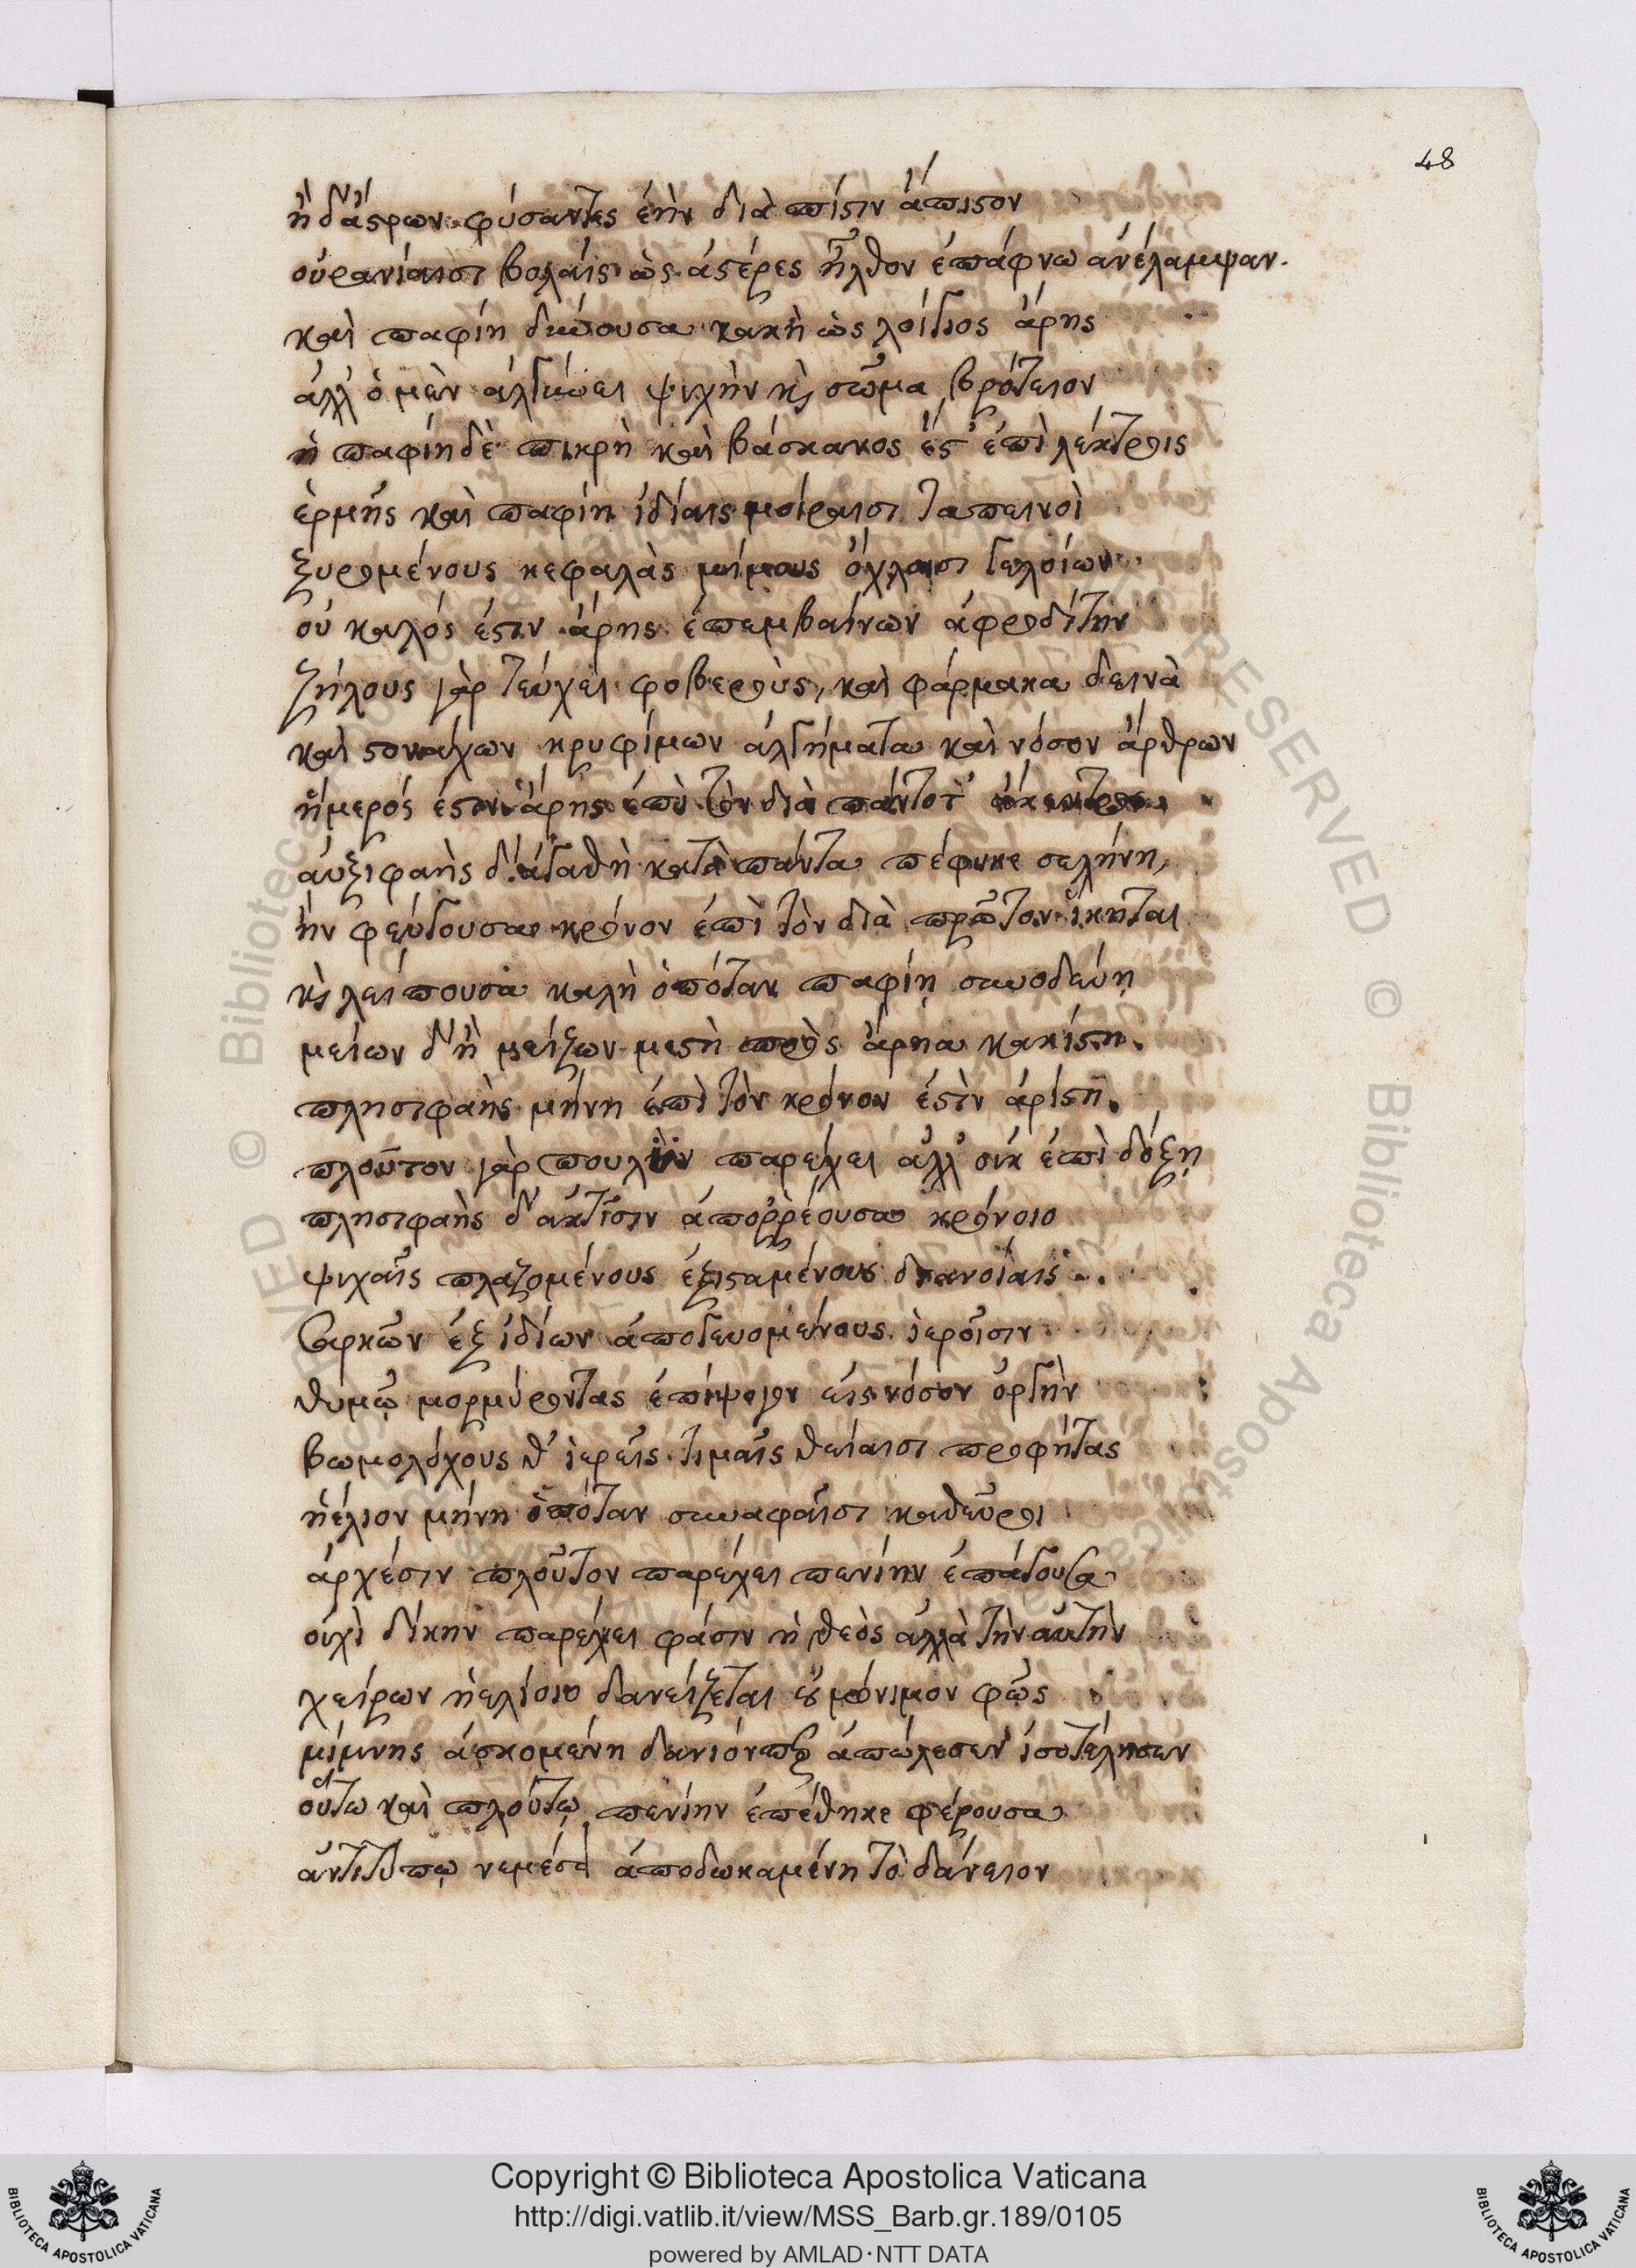 48
ἢ δ' ἄστρων φύσαντες ἐὴν διὰ πίστιν ἄπιστον
οὐρανίαισι βολαῖς ὡς ἀστέρες ἦλθον ἐπάφνω ἀνέλαμψαν.
καὶ παφίη δύνουσα κακὴ ὡς λοίγιος ἄρης
ἀλλ' ὁ μὲν ἀλγύνει ψυχὴν κὶ σῶμα βρότειον
ἡ παφίη δὲ πικρὴ καὶ βάσκανος ἔστ' ἐπὶ λέκτροις
ἑρμῆς καὶ παφίη ἰδίαις μοίραισι ταπεινοὶ
ξυρομένους κεφαλὰς μίμους ὄχλοισι γελοίων
οὐ καλός ἐστιν ἄρης ἐπεμβαίνων ἀφροδίτην
ζήλους γὰρ τεύχει φοβεροὺς, καὶ φάρμακα δεινὰ
καὶ στομάχων κρυφίμων ἀλγήματα καὶ νόσον ἄρθρων
ἥμερός ἐστιν ἄρης ἐπὶ τὸν δία πάντοτ'
αὐξιφαὴς δ' ἀγαθὴ κατὰ πάντα πέφυκε σελήνη,
ἢν φεύγουσα κρόνον ἐπὶ τὸν δία πρῶτον ἵκηται
κὶ λείπουσα καλὴ ὁπόταν παφίῃ συνοδεύῃ
μείων δ' ἢ μείζων μεστὴ πρὸς ἄρηα κακίστη.
πλησιφαὴς μήνη ἐπὶ τὸν κρόνον ἐστὶν ἀρίστη.
πλοῦτον γὰρ πουλὺν παρέχει ἀλλ' οὐκ ἐπὶ δόξῃ
πλησιφαὴς δ' ἀκτῖσιν ἀπορρέουσα κρόνοιο
ψυχαῖς πλαζομένους ἐξισταμένους διανοίαις.
σαρκῶν ἐξ ἰδίων ἀπογευομένους ἱεροῖσιν
θυμῷ μορμύροντας ἐπίψογον εἰς νόσον ὀργὴν
βωμολόχους θ' ἱερεῖς τιμαῖς θείαισι προφήτας
ἠέλιον μήνη ὁπόταν συναφαῖσι καθεύροι
ἀρχέσιν πλοῦτον παρέχει πενίην ἐπάγουσα
οὐχὶ δίκην παρέχει φάσιν ἡ θεὸς ἀλλὰ τὴν αὐτὴν
χείρων ἠελίοιο δανείζεται οὐ μόνιμον φῶς
μίμνης ἀσκομένη δανιόνπερ ἀπώλεσεν ἰσοτέλησεν
οὕτω καὶ πλούτῳ πενίην ἐπέθηκε φέρουσα
ἀντιτύπῳ νεμέσει ἀποδωκαμένη τὸ δάνειον
Copyright © Biblioteca Apostolica Vaticana
http://digi.vatlib.it/view/MSS_Barb.gr.189/0105
powered by AMLAD·NTT DATA